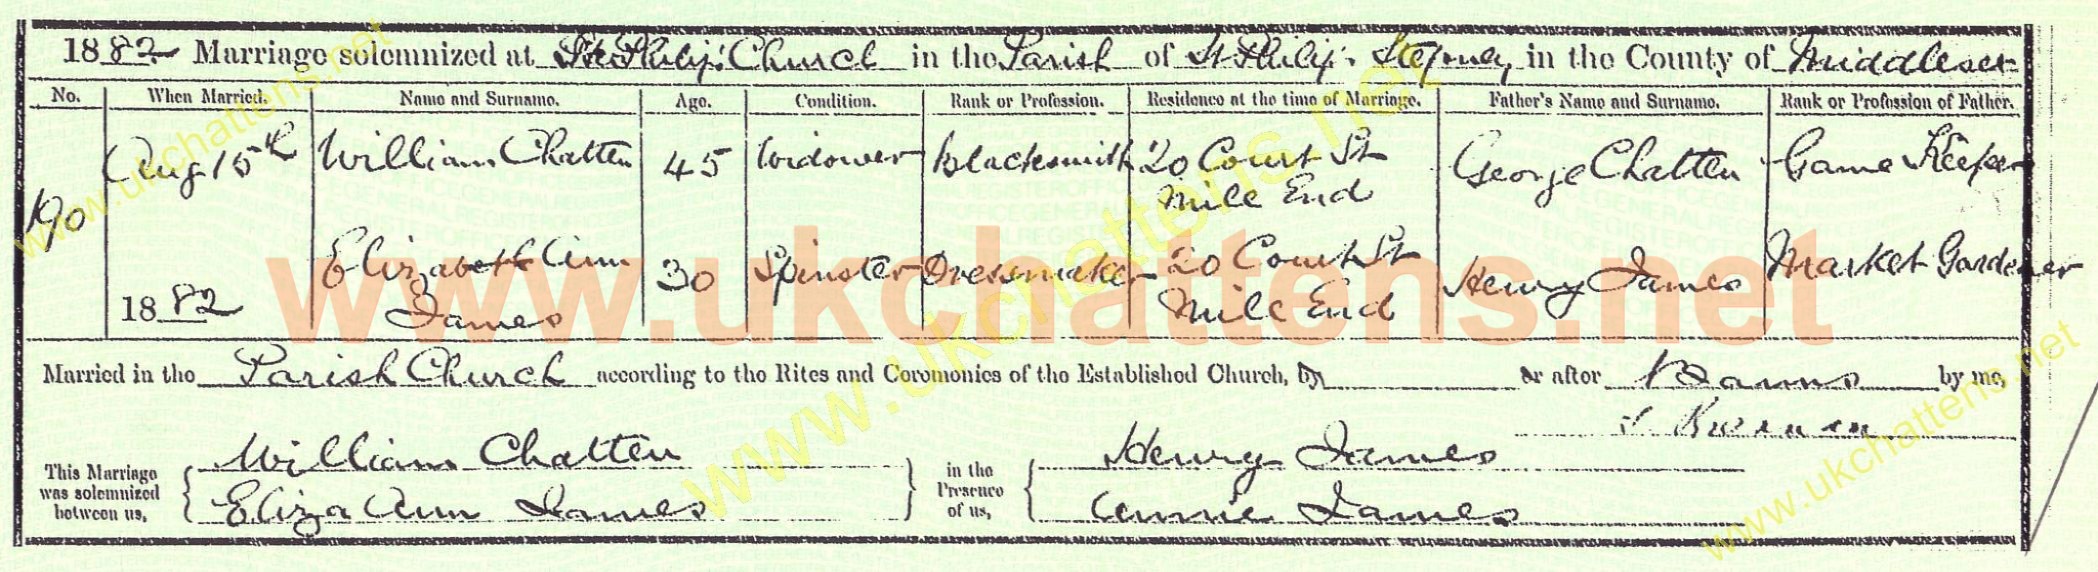 1882 Marriage solemnized at St Philip's Church in the Parish of St Philip's Stepney in the County of Middlesex
No. When Married. Name and Surname. Age. Condition. Rank or Profession. Residence at the time of Marriage. Father's Name and Surname. Rank or Profession of Father.
190 Aug 15th 1882 William Chatten 45 Widower Blacksmith 20 Court St Mile End George Chatten Game Keeper
Elizabeth Ann James 30 Spinster Dressmaker 20 Court St Mile End Henry James Market Gardener
Married in the Parish Church according to the Rites and Ceremonies of the Established Church, by or after Banns by me,
William Chatten Henry James
This Marriage was solemnized between us, in the Presence of us,
Eliza Ann James Annie James
www.ukchattens.net
www.ukchattens.net
www.ukchattens.net
www.ukchattens.net